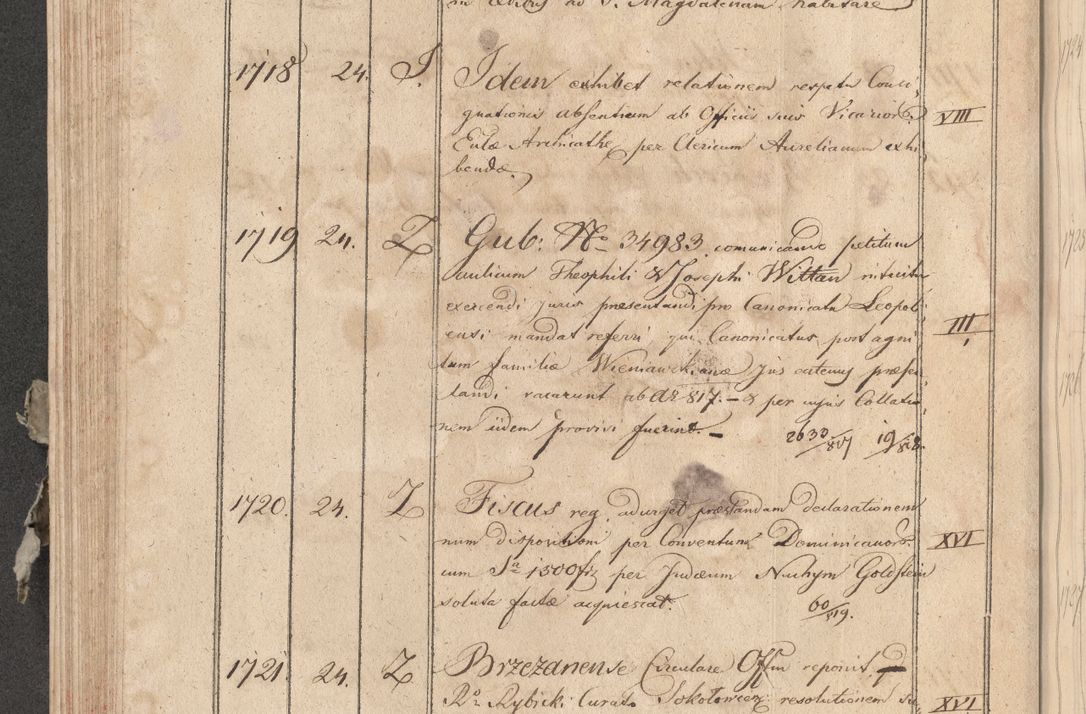 in Aedibus ad S. Magdalenam habitare
1718 24. J. Idem exhibet relationem respectu Consi,
gnationis absentium ab Officiis suis Vicarior. VIII
Eccl&aelig; Archicathe, per Clericum Aurelianum exhi
bendæ.
1719 24. Z Gub: No 34983. comunicando petitum
aulicum Theophili & Josephi Wittan intuitu
exercendi juris præsentandi pro Canonicatu Leopol
ensi mandat referri, qui Canonicatus post agni III
tum familiæ Wieniawskianæ Jus eatenus præsen
tandi vacarunt ab Ao 817. – & per cujus Collatio
nem iidem provisi fuerint. – 2633/817 19/818.
1720. 24. Z Fiscus reg. adurget præstandam declarationem
num dispositioni per Conventum Dominicanor. XVI
cum Sa 1500 fr per Judæum Nuchym Goldstein
soluta factæ acquiescat. 60/819.
1721. 24. Z Brzezanense Circulare Offm reponit –
Ro Rybicki Curato Sokołowcens resolutionem su XVI